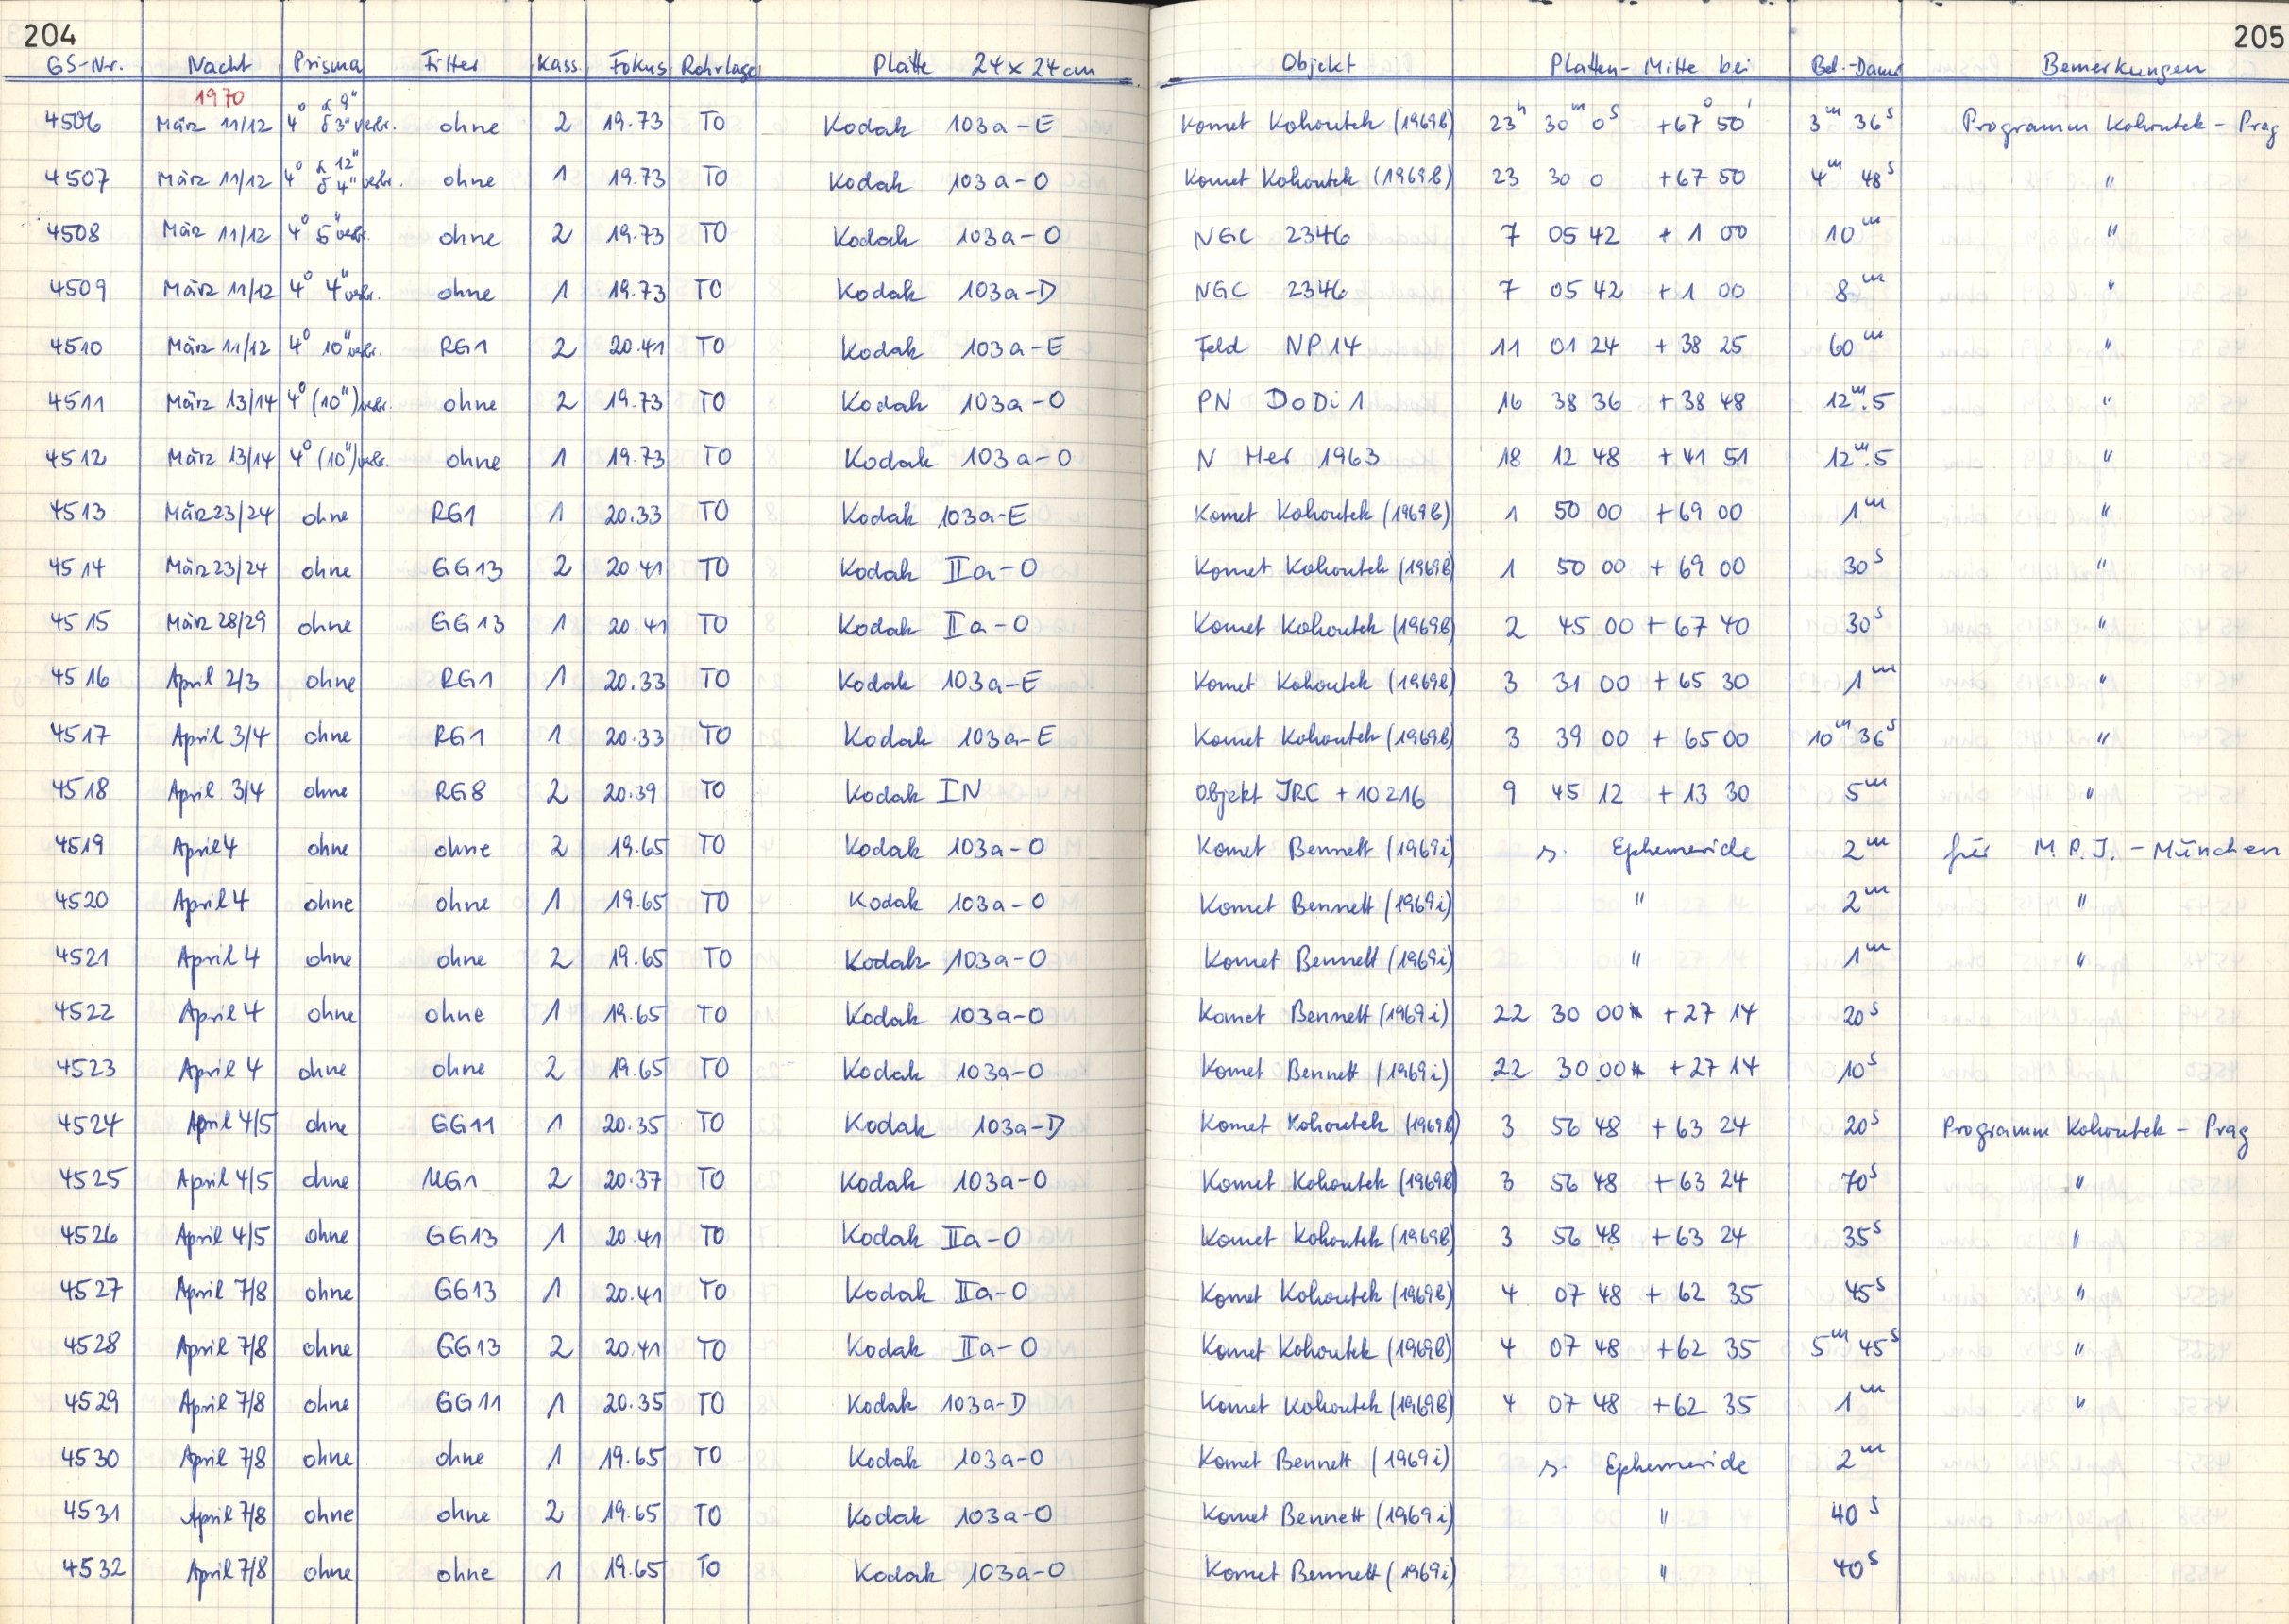 204 205
GS-Nr. Nacht Prisma Filter Kass. Fokus Rohrlage Platte 24 x 24 cm Objekt Platten-Mitte bei Bel.-Dauer Bemerkungen
1970
4506 März 11/12 4° α 9" δ 3" verbr. ohne 2 19.73 TO Kodak 103a-E Komet Kohoutek (1969b) 23h 30m 0s +67° 50' 3m 36s Programm Kohoutek - Prag
4507 März 11/12 4° α 12" δ 4" verbr. ohne 1 19.73 TO Kodak 103a-O Komet Kohoutek (1969b) 23 30 0 +67 50 4m 48s "
4508 März 11/12 4° 5" verbr. ohne 2 19.73 TO Kodak 103a-O NGC 2346 7 05 42 + 1 00 10m "
4509 März 11/12 4° 4" verbr. ohne 1 19.73 TO Kodak 103a-D NGC 2346 7 05 42 + 1 00 8m "
4510 März 11/12 4° 10" verbr. RG1 2 20.41 TO Kodak 103a-E Feld NP14 11 01 24 + 38 25 60m "
4511 März 13/14 4° (10") verbr. ohne 2 19.73 TO Kodak 103a-O PN DoDi 1 16 38 36 + 38 48 12m.5 "
4512 März 13/14 4° (10") verbr. ohne 1 19.73 TO Kodak 103a-O N Her 1963 18 12 48 + 41 51 12m.5 "
4513 März 23/24 ohne RG1 1 20.33 TO Kodak 103a-E Komet Kohoutek (1969b) 1 50 00 + 69 00 1m "
4514 März 23/24 ohne GG13 2 20.41 TO Kodak IIa-O Komet Kohoutek (1969b) 1 50 00 + 69 00 30s "
4515 März 28/29 ohne GG13 1 20.41 TO Kodak IIa-O Komet Kohoutek (1969b) 2 45 00 + 67 40 30s "
4516 April 2/3 ohne RG1 1 20.33 TO Kodak 103a-E Komet Kohoutek (1969b) 3 31 00 + 65 30 1m "
4517 April 3/4 ohne RG1 1 20.33 TO Kodak 103a-E Komet Kohoutek (1969b) 3 39 00 + 65 00 10m 36s "
4518 April 3/4 ohne RG8 2 20.39 TO Kodak IN Objekt IRC + 10216 9 45 12 + 13 30 5m "
4519 April 4 ohne ohne 2 19.65 TO Kodak 103a-O Komet Bennett (1969i) s. Ephemeride 2m für M.P.I. - München
4520 April 4 ohne ohne 1 19.65 TO Kodak 103a-O Komet Bennett (1969i) " 2m "
4521 April 4 ohne ohne 2 19.65 TO Kodak 103a-O Komet Bennett (1969i) " 1m "
4522 April 4 ohne ohne 1 19.65 TO Kodak 103a-O Komet Bennett (1969i) 22 30 00 + 27 14 20s
4523 April 4 ohne ohne 2 19.65 TO Kodak 103a-O Komet Bennett (1969i) 22 30 00 + 27 14 10s
4524 April 4/5 ohne GG11 1 20.35 TO Kodak 103a-D Komet Kohoutek (1969b) 3 56 48 + 63 24 20s Programm Kohoutek - Prag
4525 April 4/5 ohne UG1 2 20.37 TO Kodak 103a-O Komet Kohoutek (1969b) 3 56 48 + 63 24 70s "
4526 April 4/5 ohne GG13 1 20.41 TO Kodak IIa-O Komet Kohoutek (1969b) 3 56 48 + 63 24 35s "
4527 April 7/8 ohne GG13 1 20.41 TO Kodak IIa-O Komet Kohoutek (1969b) 4 07 48 + 62 35 45s "
4528 April 7/8 ohne GG13 2 20.41 TO Kodak IIa-O Komet Kohoutek (1969b) 4 07 48 + 62 35 5m 45s "
4529 April 7/8 ohne GG11 1 20.35 TO Kodak 103a-D Komet Kohoutek (1969b) 4 07 48 + 62 35 1m "
4530 April 7/8 ohne ohne 1 19.65 TO Kodak 103a-O Komet Bennett (1969i) s. Ephemeride 2m
4531 April 7/8 ohne ohne 2 19.65 TO Kodak 103a-O Komet Bennett (1969i) " 40s
4532 April 7/8 ohne ohne 1 19.65 TO Kodak 103a-O Komet Bennett (1969i) " 40s